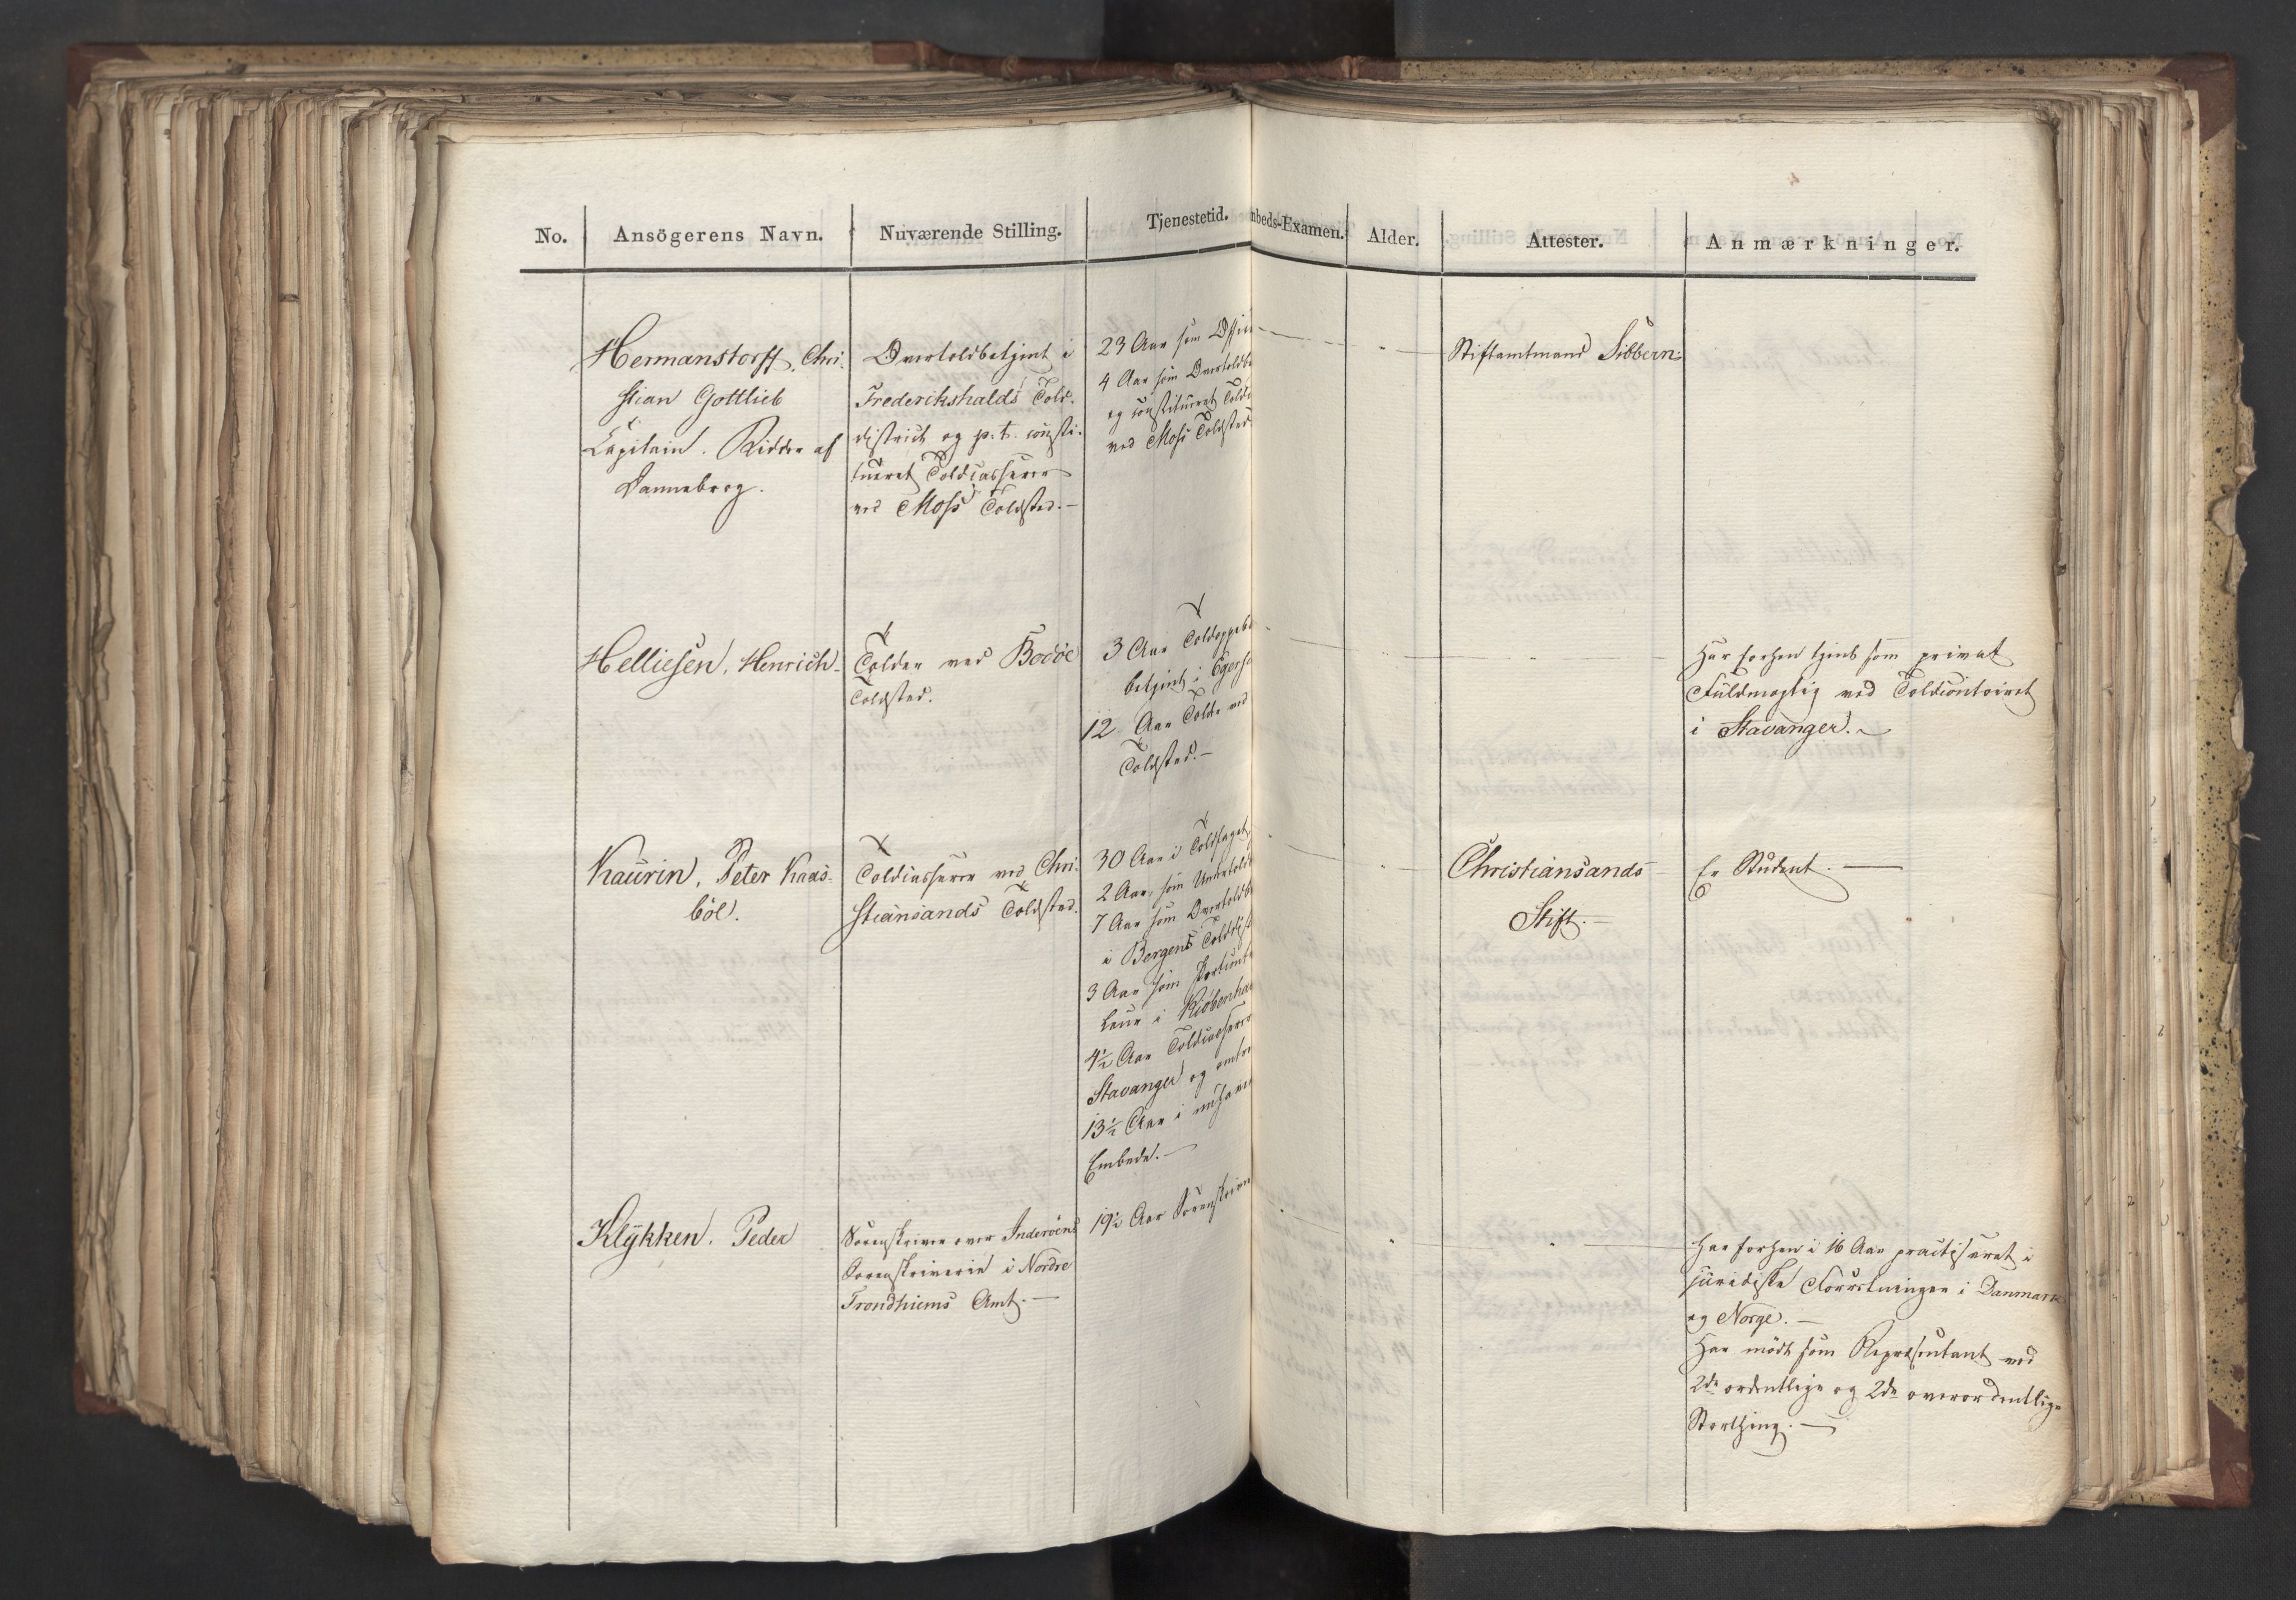 No. Ansögerens Navn. Nuværende Stilling. Tjenestetid. mbeds-Examen. Alder. Attester. Anmærkninger.
Hermanstorff, Chri-
stian Gottlieb
Capitain. Ridder af
Dannebrog.
Overtoldbetjent i
Frederikshalds Told-
district og p. t. consti-
tueret Toldcasserer
ved Moss Toldsted. –
23 Aar som Offic
4 Aar som Overtoldbe
og constitueret Toldc
ved Moss Toldsted
Stiftamtmand Sibbern.
Helliesen, Henrich
Tolder ved Bodöe
Toldsted.
3 Aar Toldoppebe
betjent i Egersu
12 Aar Tolder ved
Toldsted. –
Har forhen tjent som privat
Fuldmægtig ved Toldcontoiret
i Stavanger. –
Kaurin, Peter Kaas-
böl.
Toldcasserer ved Chri-
stiansands Toldsted.
30 Aar i Toldfaget,
2 Aar, som Undertoldb
7 Aar som Overtoldbe
i Bergens Tolddist
3 Aar som
leur i Kiöbenhav
4½ Aar Toldcasserer
Stavanger og omtre
13½ Aar i nuhavend
Embede. –
Christiansands
Stift. –
Er Student. –
Klykken, Peder
Sorenskriver over Inderöens
Sorenskriverie i Nordre
Trondhiems Amt. –
19½ Aar Sorenskriver
Har forhen i 16 Aar practiseret i
juridiske Forretninger i Danmark
og Norge. –
Har mödt som Repræsentant ved
2de ordentlige og 2de overordentlige
Storthing. –